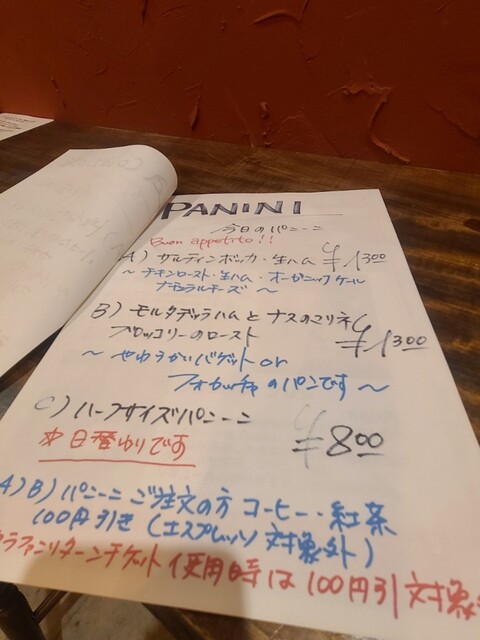 PANINI
今日のパニーニ
Buon appetito!!
A) サルティンボッカ・生ハム ¥1300
~ チキンロースト・生ハム・オーガニックケール
ナチュラルチーズ ~
B) モルタデッラハムとナスのマリネ
ブロッコリーのロースト ¥1300
~ やわらかいバゲット or
フォカッチャのパンです ~
C) ハーフサイズパニーニ ¥800
※日替わりです
A)B) パニーニご注文の方 コーヒー・紅茶
100円引き (エスプレッソ対象外)
リターンチケット使用時は100円引対象